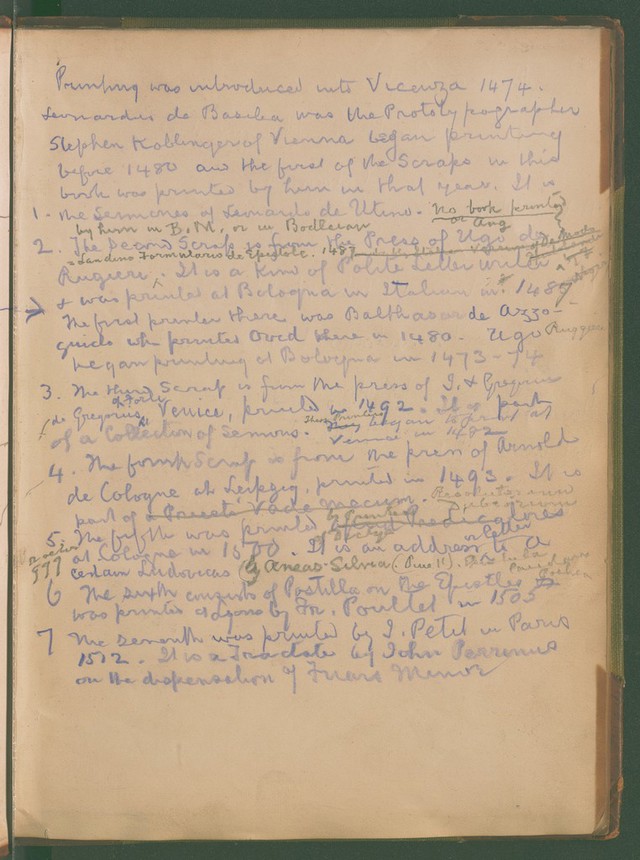 Printing was introduced into Vicenza 1474.
Leonardus de Basilea was the Prototypographer
Stephen Koblinger of Vienna began printing
before 1480 and the first of the Scraps in this
book was printed by him in that year. It is
1. The Sermones of Leonardo de Utino. No book printed
by him in B.M. or in Bodleian or Aug
2. The Second Scrap is from the Press of Ugo de
= Landino Formulario de Epistole. 1487
Rugieri. It is a kind of Polite Letter writer
& was printed at Bologna in Italian in 1485
The first printer there was Balthasar de Azzo-
guidi who printed Ovid there in 1480. Ugo Ruggeri
began printing at Bologna in 1473-74
3. The third Scrap is from the press of J. & Gregorius
de Forli
de Gregoriis, Venice, printed in 1492. It is part
of a Collection of Sermons. These printers began to print at
Venice in 1482
4. The fourth Scrap is from the press of Arnold
de Cologne at Leipzig, printed in 1493. It is
part of a Priests' Vade mecum. Resolutorium
dubiorum
5. The fifth was printed by Printers
at Cologne in 1500. It is an address or letter to a
certain Ludovicus by Aeneas Silvia (Pius II).
6 The sixth consists of Postilla on the Epistles
was printed at Lyons by Fr. Poullet in 1505
7 The seventh was printed by J. Petit in Paris
1512. It is a Tractate by John Perrinus
on the dispensation of Friars Minor